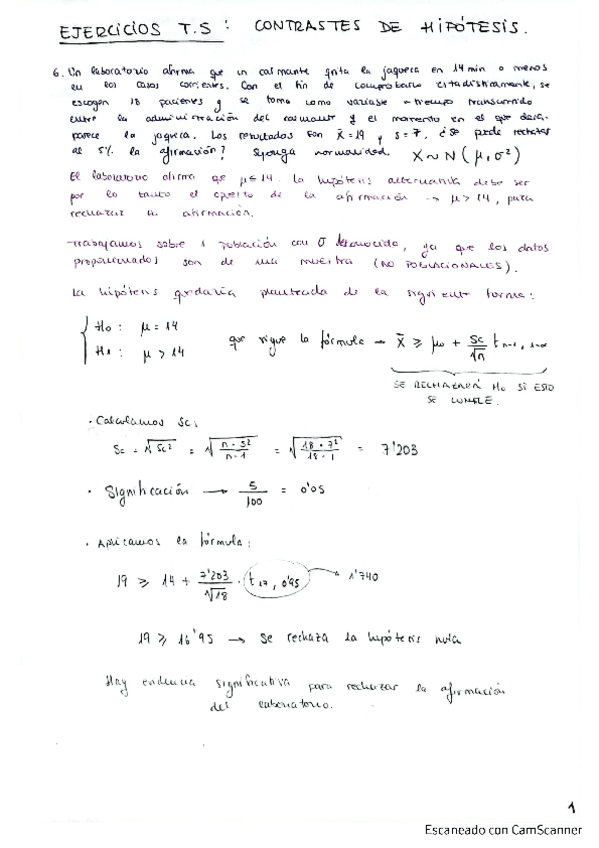 EJERCICIOS T.5: CONTRASTES DE HIPÓTESIS.
6. Un laboratorio afirma que un calmante quita la jaqueca en 14 min o menos
en los casos corrientes. Con el fin de comprobarlo estadísticamente, se
escogen 18 pacientes y se toma como variable el tiempo transcurrido
entre la administración del calmante y el momento en el que desa-
parece la jaqueca. Los resultados son x̄=19 y s=7. ¿Se puede rechazar
al 5% la afirmación? Suponga normalidad. X~N(μ,σ²)
El laboratorio afirma que μ≤14. La hipótesis alternativa debe ser
por lo tanto el opuesto de la afirmación → μ>14, para
rechazar la afirmación.
Trabajamos sobre 1 población con σ desconocido, ya que los datos
proporcionados son de una muestra (NO POBLACIONALES).
La hipótesis quedaría planteada de la siguiente forma:
{ H₀: μ = 14
H₁: μ > 14
que sigue la fórmula → X̄ ≥ μ₀ + Sc/√n t n-1, 1-α
SE RECHAZARÁ H₀ SI ESTO
SE CUMPLE.
· Calculamos Sc:
Sc = √Sc² = √(n·S²/n-1) = √(18·7²/18-1) = 7'203
· Significación → 5/100 = 0'05
· Aplicamos la fórmula:
19 ≥ 14 + 7'203/√18 · t 17, 0'95 → 1'740
19 ≥ 16'95 → Se rechaza la hipótesis nula
Hay evidencia significativa para rechazar la afirmación
del laboratorio.
1
Escaneado con CamScanner